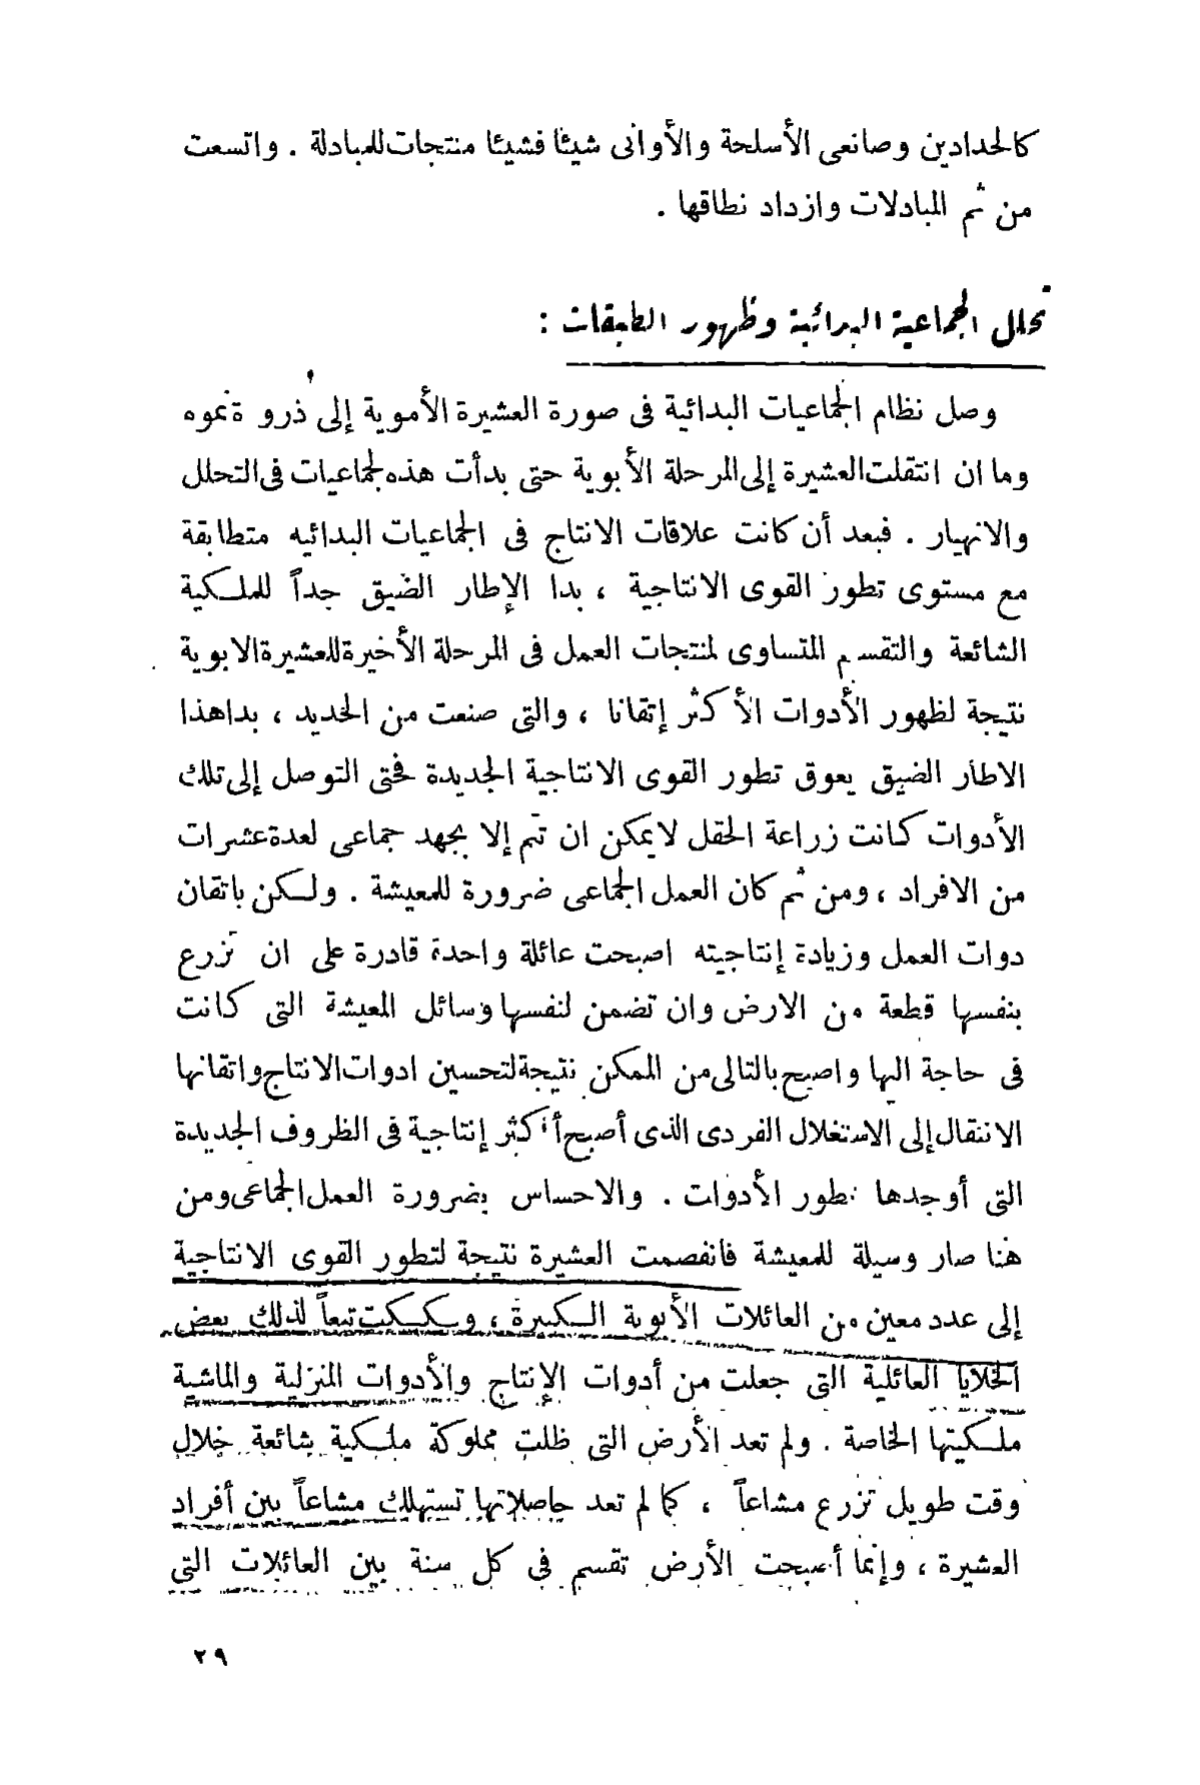 كالحدادين وصانعى الأسلحة والأوانى شيئا فشيئا منتجات للمبادلة . واتسعت
من ثم المبادلات وازداد نطاقها .
تحلل الجماعية البدائية وظهور الطبقات :
وصل نظام الجماعيات البدائية فى صورة العشيرة الأموية إلى ذروة نموه
وما ان انتقلت العشيرة إلى المرحلة الأبوية حتى بدأت هذه لجماعيات فى التحلل
والانهيار . فبعد أن كانت علاقات الانتاج فى الجماعيات البدائيه متطابقة
مع مستوى تطور القوى الانتاجية ، بدا الإطار الضيق جداً للملكية
الشائعة والتقسيم المتساوى لمنتجات العمل فى المرحلة الأخيرة للعشيرة الابوية
نتيجة لظهور الأدوات الأكثر إتقانا ، والتى صنعت من الحديد ، بدا هذا
الاطار الضيق يعوق تطور القوى الانتاجية الجديدة فحتى التوصل إلى تلك
الأدوات كانت زراعة الحقل لا يمكن ان تتم إلا بجهد جماعى لعدة عشرات
من الافراد ، ومن ثم كان العمل الجماعى ضرورة للمعيشة . ولكن باتقان
دوات العمل وزيادة إنتاجيته اصبحت عائلة واحدة قادرة على ان تزرع
بنفسها قطعة من الارض وان تضمن لنفسها وسائل المعيشة التى كانت
فى حاجة اليها واصبح بالتالى من الممكن نتيجة لتحسين ادوات الانتاج واتقانها
الانتقال إلى الاستغلال الفردى الذى أصبح أكثر إنتاجية فى الظروف الجديدة
التى أوجدها تطور الأدوات . والاحساس بضرورة العمل الجماعى ومن
هنا صار وسيلة للمعيشة فانفصمت العشيرة نتيجة لتطور القوى الانتاجية
إلى عدد معين من العائلات الأبوية الكبيرة ، وتكونت تبعاً لذلك بعض
الخلايا العائلية التى جعلت من أدوات الإنتاج والأدوات المنزلية والماشية
ملكيتها الخاصة . ولم تعد الأرض التى ظلت مملوكة ملكية شائعة خلال
وقت طويل تزرع مشاعاً ، كما لم تعد حاصلاتها تستهلك مشاعاً بين أفراد
العشيرة ، وإنما أصبحت الأرض تقسم فى كل سنة بين العائلات التى
٢٩